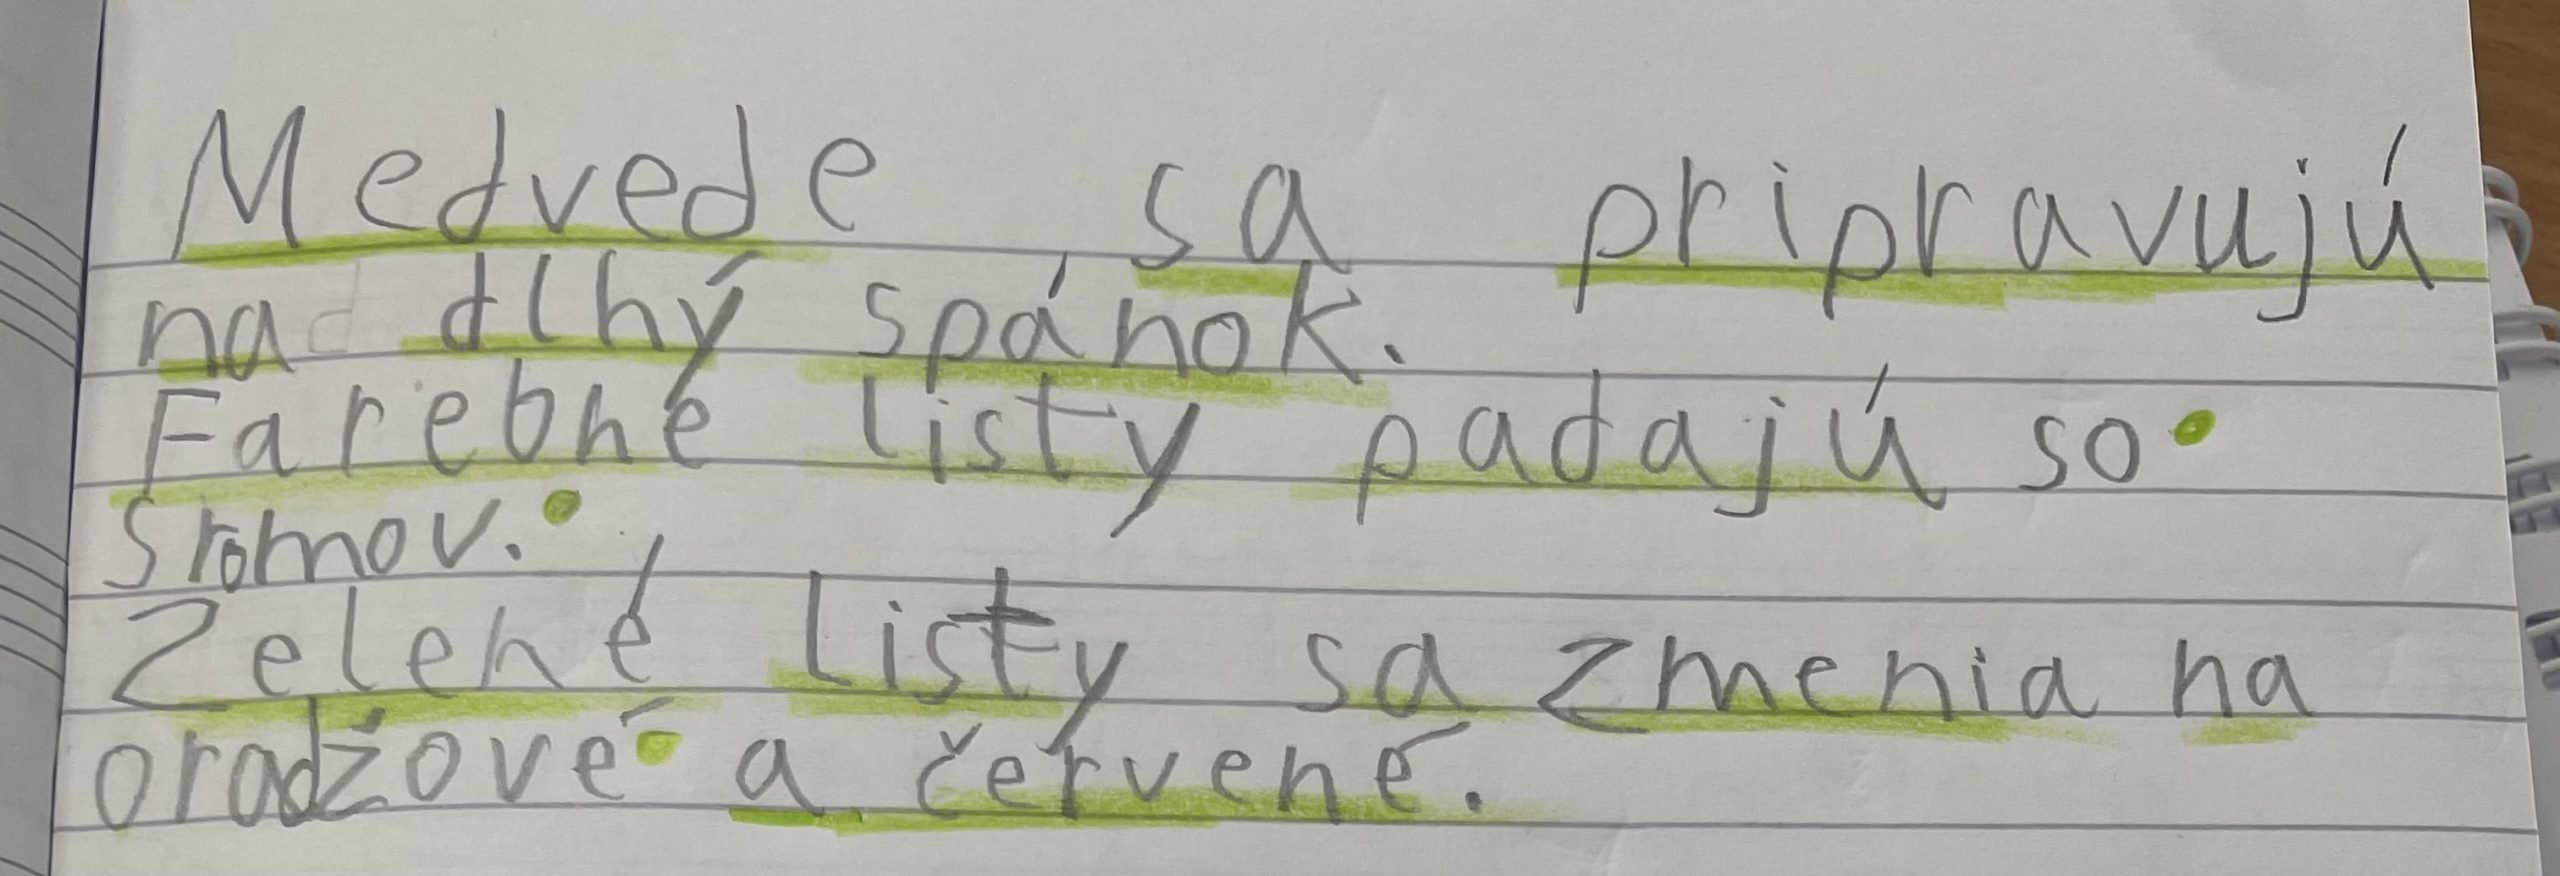 Medvede sa pripravujú
na dlhý spánok.
Farebné listy padajú so
sromov.
Zelené listy sa zmenia na
oradžové a červené.